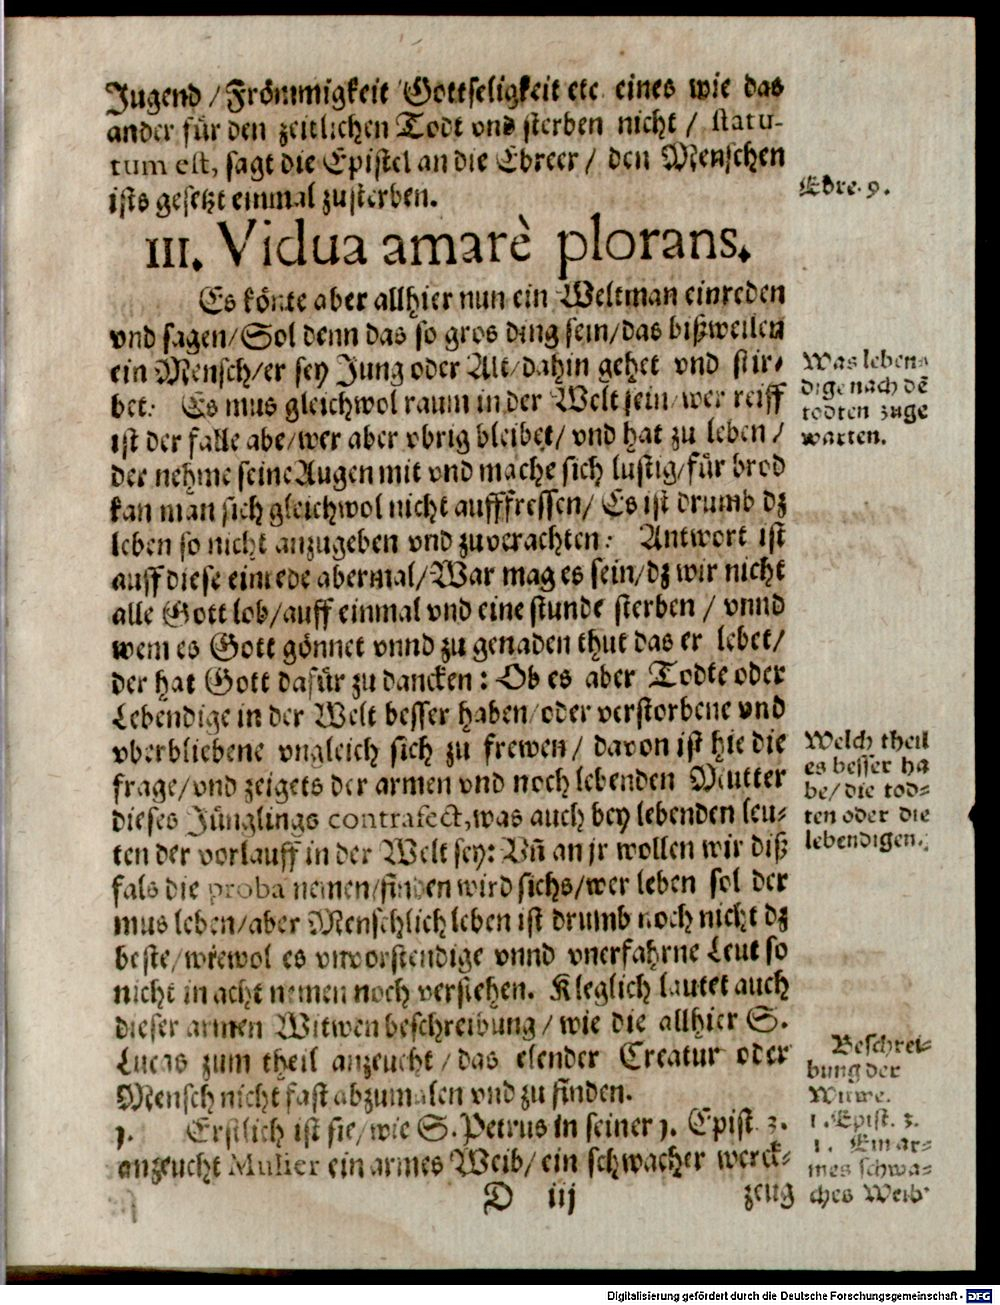 Jugend / Frömmigkeit Gottseligkeit etc. eines wie das
ander für den zeitlichen Todt vnd sterben nicht / statu-
tum est, sagt die Epistel an die Ebreer / den Menschen
ists gesetzt einmal zusterben.
Ebre. 9.
III. Vidua amarè plorans.
Es könte aber allhier nun ein Weltman einreden
vnd sagen / Sol denn das so gros ding sein / das bißweilen
ein Mensch / er sey Jung oder Alt / dahin gehet vnd stir-
bet: Es mus gleichwol raum in der Welt sein / wer reiff
ist der falle abe / wer aber vbrig bleibet / vnd hat zu leben /
der nehme seine Augen mit vnd mache sich lustig / für brod
kan man sich gleichwol nicht aufffressen / Es ist drumb dz
leben so nicht anzugeben vnd zuverachten: Antwort ist
auff diese einrede abermal / War mag es sein / dz wir nicht
alle Gott lob / auff einmal vnd eine stunde sterben / vnnd
wem es Gott gönnet vnnd zu genaden thut das er lebet /
der hat Gott dafür zu dancken: Ob es aber Todte oder
Lebendige in der Welt besser haben / oder verstorbene vnd
vberbliebene vngleich sich zu frewen / davon ist hie die
frage / vnd zeigets der armen vnd noch lebenden Mutter
dieses Jünglings contrafect, was auch bey lebenden leu-
ten der vorlauff in der Welt sey: Vñ an jr wollen wir diß
fals die proba nemen / finden wird sichs / wer leben sol der
mus leben / aber Menschlich leben ist drumb noch nicht dz
beste / wiewol es vnvorstendige vnnd vnerfahrne Leut so
nicht in acht nemen noch verstehen. Kleglich lautet auch
dieser armen Witwen beschreibung / wie die allhier S.
Lucas zum theil anzeucht / das elender Creatur oder
Mensch nicht fast abzumalen vnd zu finden.
1. Erstlich ist sie / wie S. Petrus in seiner 1. Epist. 3.
anzeucht Mulier ein armes Weib / ein schwacher werck-
D iij
zeug
Was leben-
dige nach dẽ
todten zuge
warten.
Welch theil
es besser ha
be / die tod-
ten oder die
lebendigen.
Beschrei-
bung der
Witwe.
1. Epist. 3.
1. Ein ar-
mes schwa-
ches Weib
Digitalisierung gefördert durch die Deutsche Forschungsgemeinschaft - DFG